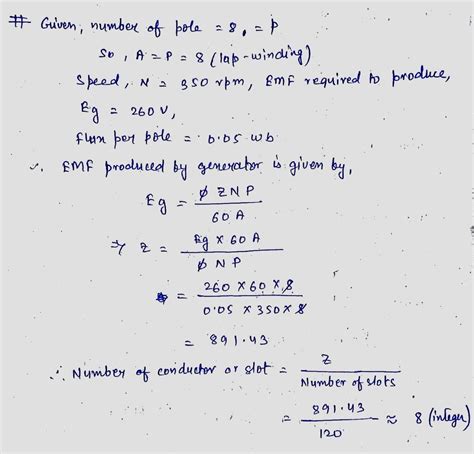 # Given, number of pole = 8, = p
So, A = P = 8 (lap-winding)
Speed, N = 350 rpm, EMF required to produce,
Eg = 260 V,
flux per pole = 0.05 wb
∴ EMF produced by generator is given by,
Eg = ϕ Z N P / 60 A
⇒ Z = Eg × 60 A / ϕ N P
= 260 × 60 × 8 / 0.05 × 350 × 8
= 891.43
∴ Number of conductor or slot = Z / Number of slots
= 891.43 / 120 ≈ 8 (integer)